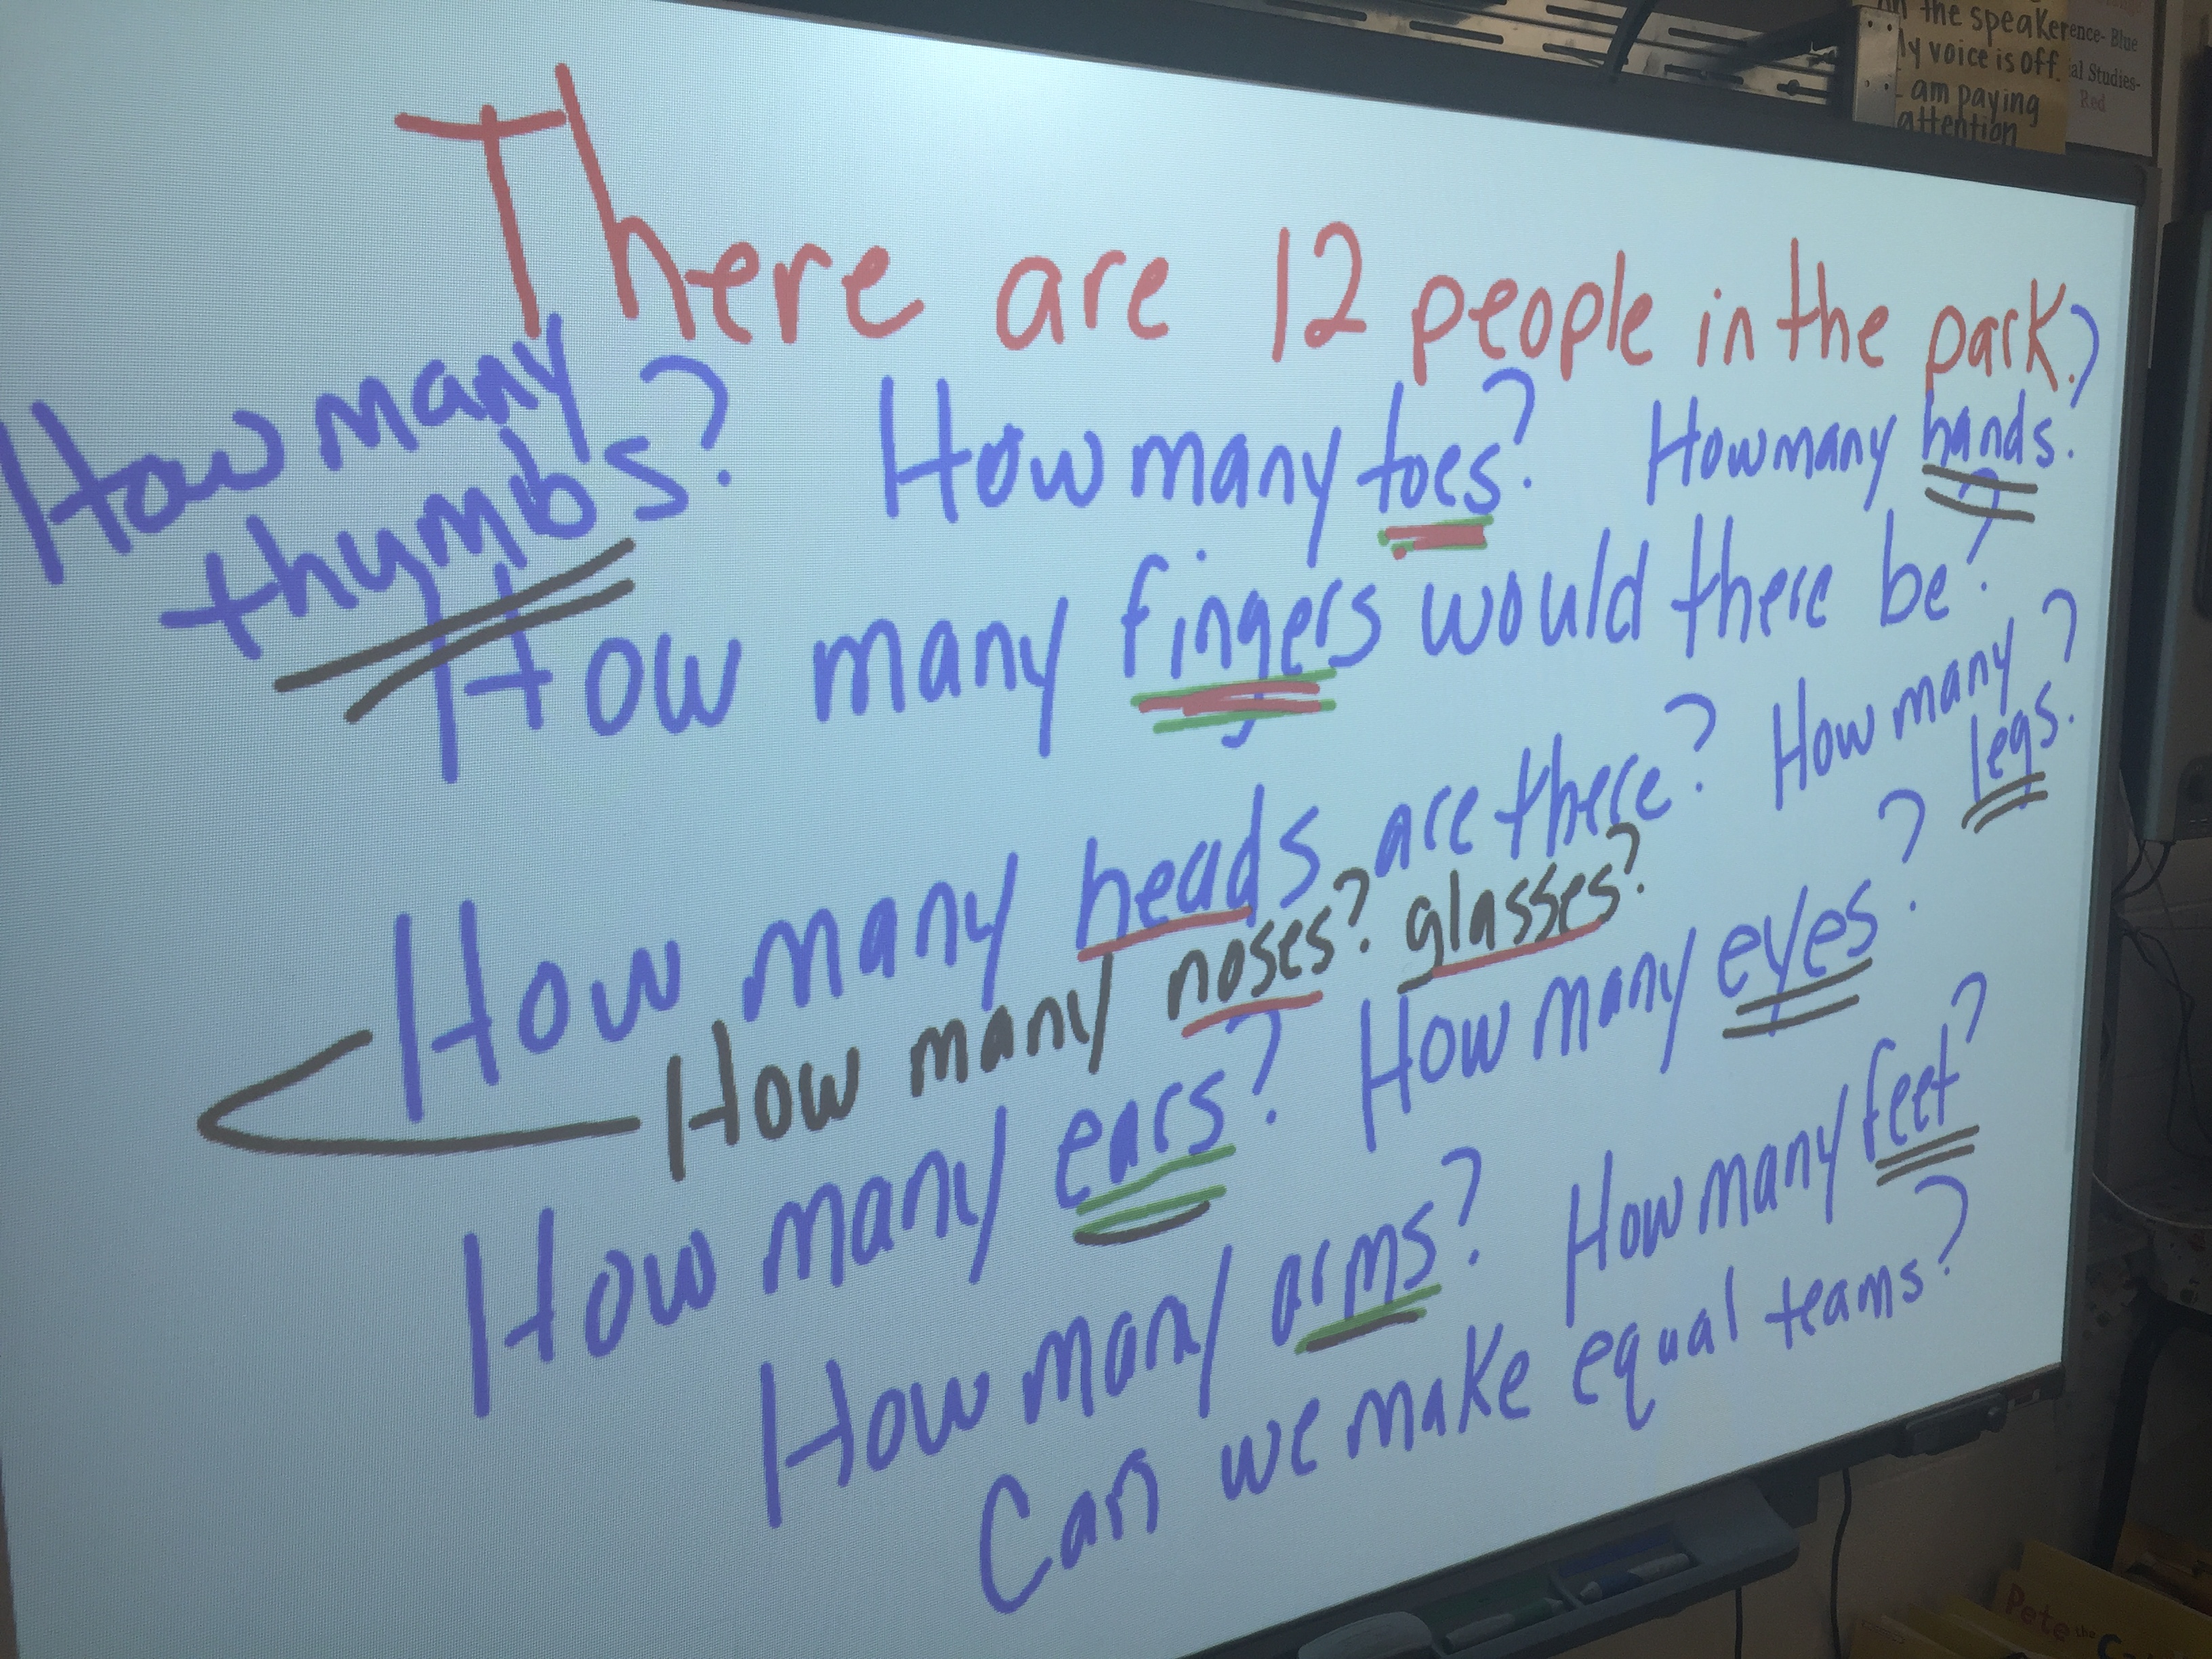 There are 12 people in the park.
How many thumbs?
How many toes?
How many hands?
How many fingers would there be?
How many heads are there?
How many legs?
How many noses? glasses?
How many ears?
How many eyes?
How many arms?
How many feet?
Can we make equal teams?
the speaker
y voice is off.
am paying
attention
ence- Blue
al Studies-
Red
Pete the